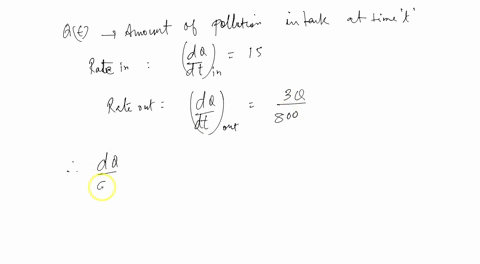 Q(t) → Amount of pollution in tank at time 't'
Rate in : (dQ/dt)in = 15
Rate out : (dQ/dt)out = 3Q/800
∴ dQ